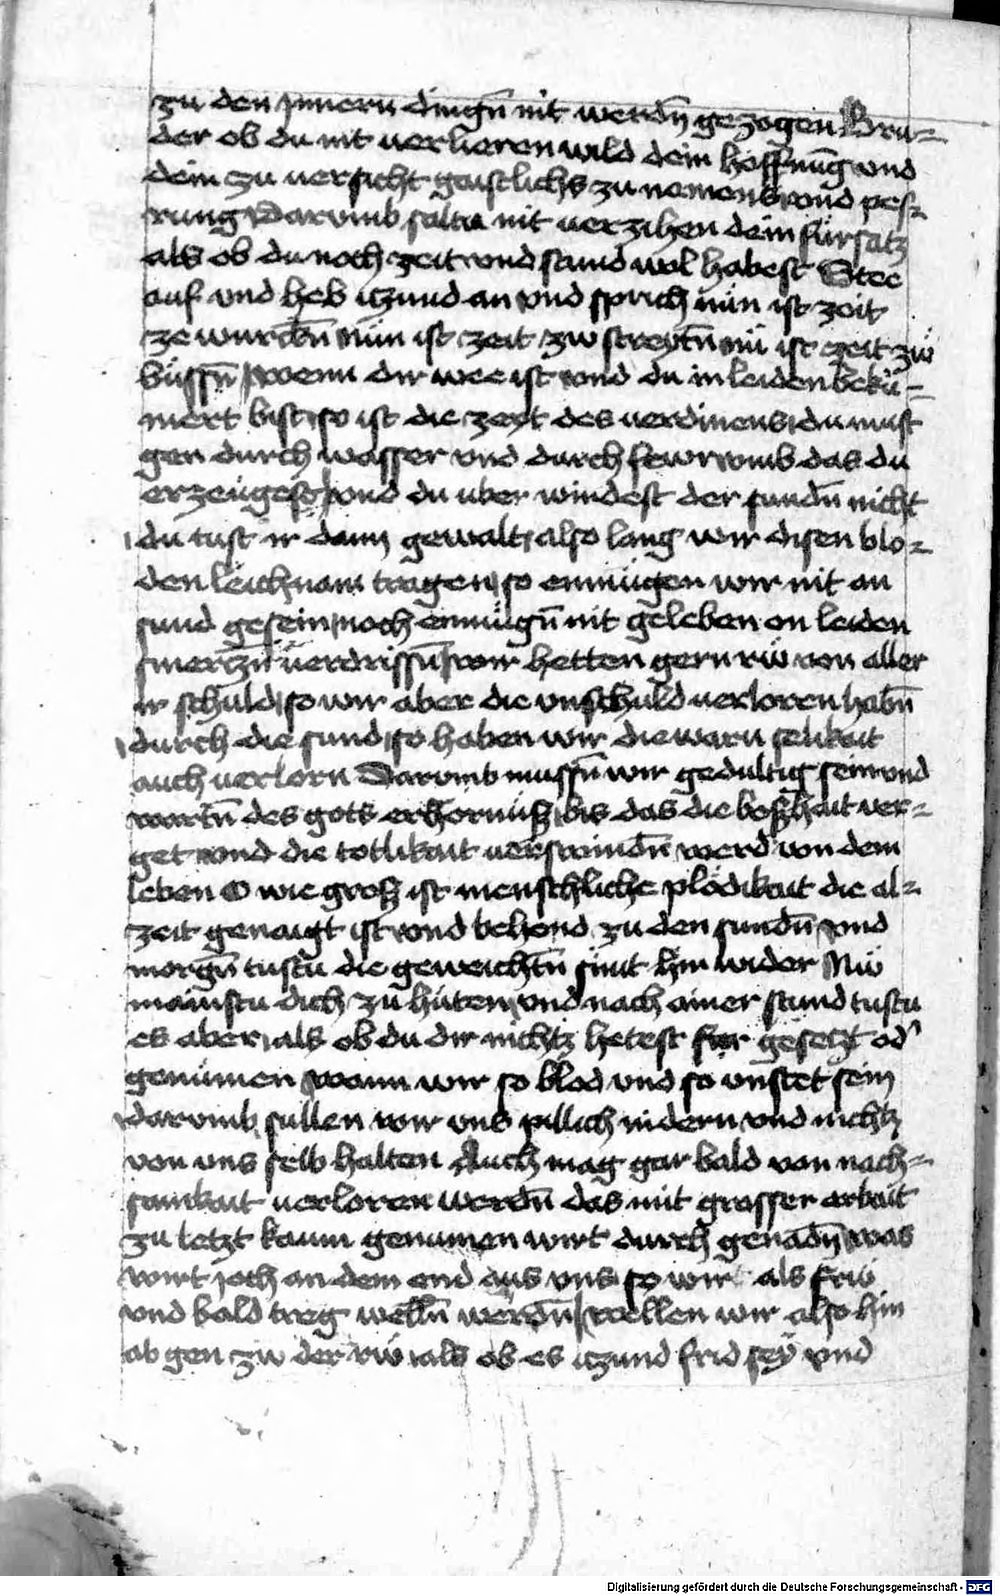 zu den innern dingn̄ nit werdn̄ gezogen Bru-
der ob du nit uerlieren wild dein hoffnūg vnd
dein zu uersicht gaistlichs zu nemens vnd pes-
rung Darvmb saltu nit uerzihen dein fürsatz
als ob du noch zeit vnd stund wol habest Stee
auf vnd heb itzund an vnd sprich nün ist zeit
ze wurckn̄ nün ist zeit zw streytn̄ nü ist zeit zw̄
büssn̄ wenn dir wee ist vnd du in leiden bekü-
mert bist so ist die zeyt des uerdinens du must
gen durch wasser vnd durch fewr vmb das du
erzeugest vnd du uber windest der sundn̄ nicht
du tust ir dann gewalt also lang wir disen blo-
den leichnam tragen so enmügen wir nit an
sund gesein noch enmügn̄ nit geleben on leiden
smertzn̄ uerdrissn̄ wir hetten gern rw̄ von aller
ir schuld so wir aber die vnschuld uerloren habn̄
durch die sund so haben wir die warn selikait
auch uerlorn Darvmb mussn̄ wir gedultig sein vnd
wartn̄ des gots erbormüsz bis das die boszhait ver-
get vnd die totlikait uerswindn̄ werd von dem
leben O wie grosz ist menschliche plödikait die al-
zeit genaigt ist vnd behend zu den sundn̄ vnd
morgn̄ tustu die geweichtn̄ sünt hin wider Nw̄
mainstu dich zu hüten vnd nach ainer stund tustu
es aber als ob du dir nichtz hetest fur gesetzt od'
genümen wann wir so blod vnd so vnstet sein
darvmb sullen wir vns pillich nidern vnd nichtz
von vns selb halten Auch mag gar bald von nach-
samkait uerloren werdn̄ das mit grosser arbait
zu letzt kaum genumen wirt durch genadn̄ was
wirt joch an dem end aus vns so wir als frw̄
vnd bald treg welln̄ werdn̄ wellen wir also hin
ab gen zw der rw̄ als ob es itzund frid seÿ vnd
Digitalisierung gefördert durch die Deutsche Forschungsgemeinschaft - DFG